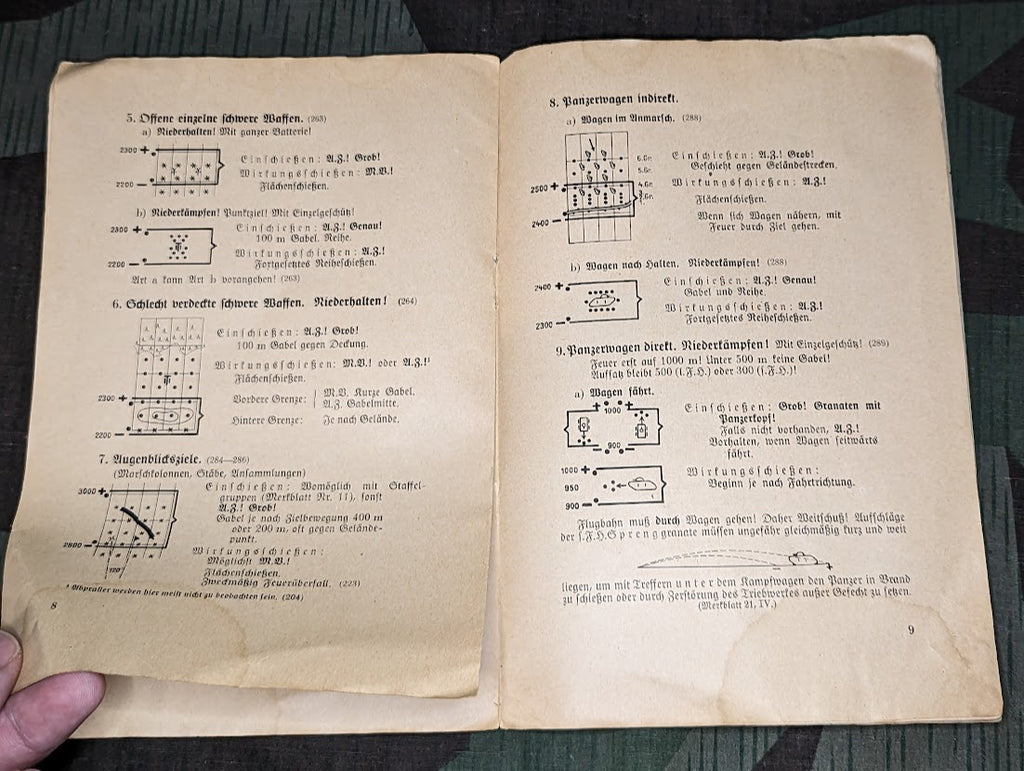 5. Offene einzelne schwere Waffen. (263)
a) Niederhalten! Mit ganzer Batterie!
2300 +
2200 —
Einschießen: A.Z.! Grob!
Wirkungsschießen: M.V.!
Flächenschießen.
b) Niederkämpfen! Punktziel! Mit Einzelgeschütz!
2300 +
2200 —
Einschießen: A.Z.! Genau!
100 m Gabel. Reihe.
Wirkungsschießen: A.Z.!
Fortgesetztes Reiheschießen.
Art a kann Art b vorangehen! (263)
6. Schlecht verdeckte schwere Waffen. Niederhalten! (264)
2300 +
2200 —
Einschießen: A.Z.! Grob!
100 m Gabel gegen Deckung.
Wirkungsschießen: M.V.! oder A.Z.!¹
Flächenschießen.
Vordere Grenze: M.V. Kurze Gabel.
A.Z. Gabelmitte.
Hintere Grenze: Je nach Gelände.
7. Augenblicksziele. (284—286)
(Marschkolonnen, Stäbe, Ansammlungen)
3000 +
2800 —
120°
Einschießen: Womöglich mit Staffel-
gruppen (Merkblatt Nr. 11), sonst
A.Z.! Grob!
Gabel je nach Zielbewegung 400 m
oder 200 m, oft gegen Gelände-
punkt.
Wirkungsschießen:
Möglichst M.V.!
Flächenschießen.
Zweckmäßig Feuerüberfall. (223)
¹ Abpraller werden hier meist nicht zu beobachten sein. (204)
8
8. Panzerwagen indirekt.
a) Wagen im Anmarsch. (288)
6.Gr.
5.Gr.
4.Gr.
2500 +
2400 —
Einschießen: A.Z.! Grob!
Geschieht gegen Geländestrecken.
Wirkungsschießen: A.Z.!
Flächenschießen.
Wenn sich Wagen nähern, mit
Feuer durch Ziel gehen.
b) Wagen nach Halten. Niederkämpfen! (288)
2400 +
2300 —
Einschießen: A.Z.! Genau!
Gabel und Reihe.
Wirkungsschießen: A.Z.!
Fortgesetztes Reiheschießen.
9. Panzerwagen direkt. Niederkämpfen! Mit Einzelgeschütz! (289)
Feuer erst auf 1000 m! Unter 500 m keine Gabel!
Aufsatz bleibt 500 (l.F.H.) oder 300 (s.F.H.)!
a) Wagen fährt.
+ 1000 +
— 900 —
Einschießen: Grob! Granaten mit
Panzerkopf!
Falls nicht vorhanden, A.Z.!
Vorhalten, wenn Wagen seitwärts
fährt.
1000 +
950
900 —
Wirkungsschießen:
Beginn je nach Fahrtrichtung.
Flugbahn muß durch Wagen gehen! Daher Weitschuß! Aufschläge
der s.F.H.Sprenggranate müssen ungefähr gleichmäßig kurz und weit
liegen, um mit Treffern unter dem Kampfwagen den Panzer in Brand
zu schießen oder durch Zerstörung des Triebwerkes außer Gefecht zu setzen.
(Merkblatt 21, IV.)
9